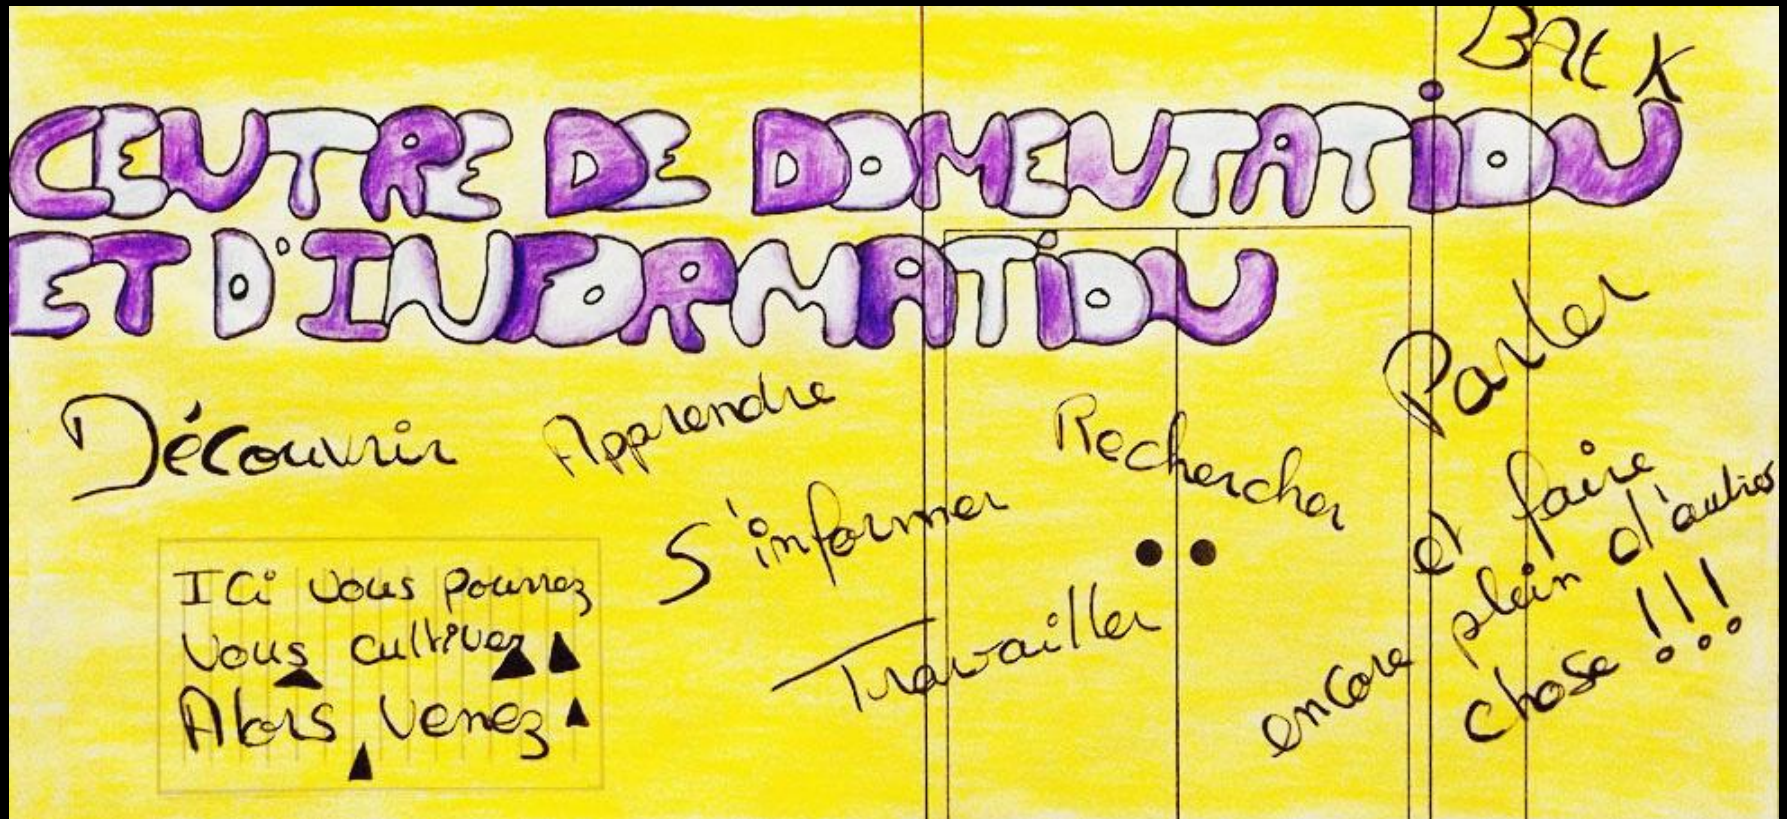 CENTRE DE DOMENTATiON
ET D'INFORMATiON
Découvrir
Apprendre
Rechercher
Parler
S'informer
Travailler
et faire
encore plein d'autres
chose !!!
ICi vous pourrez
vous cultiver
Alors venez